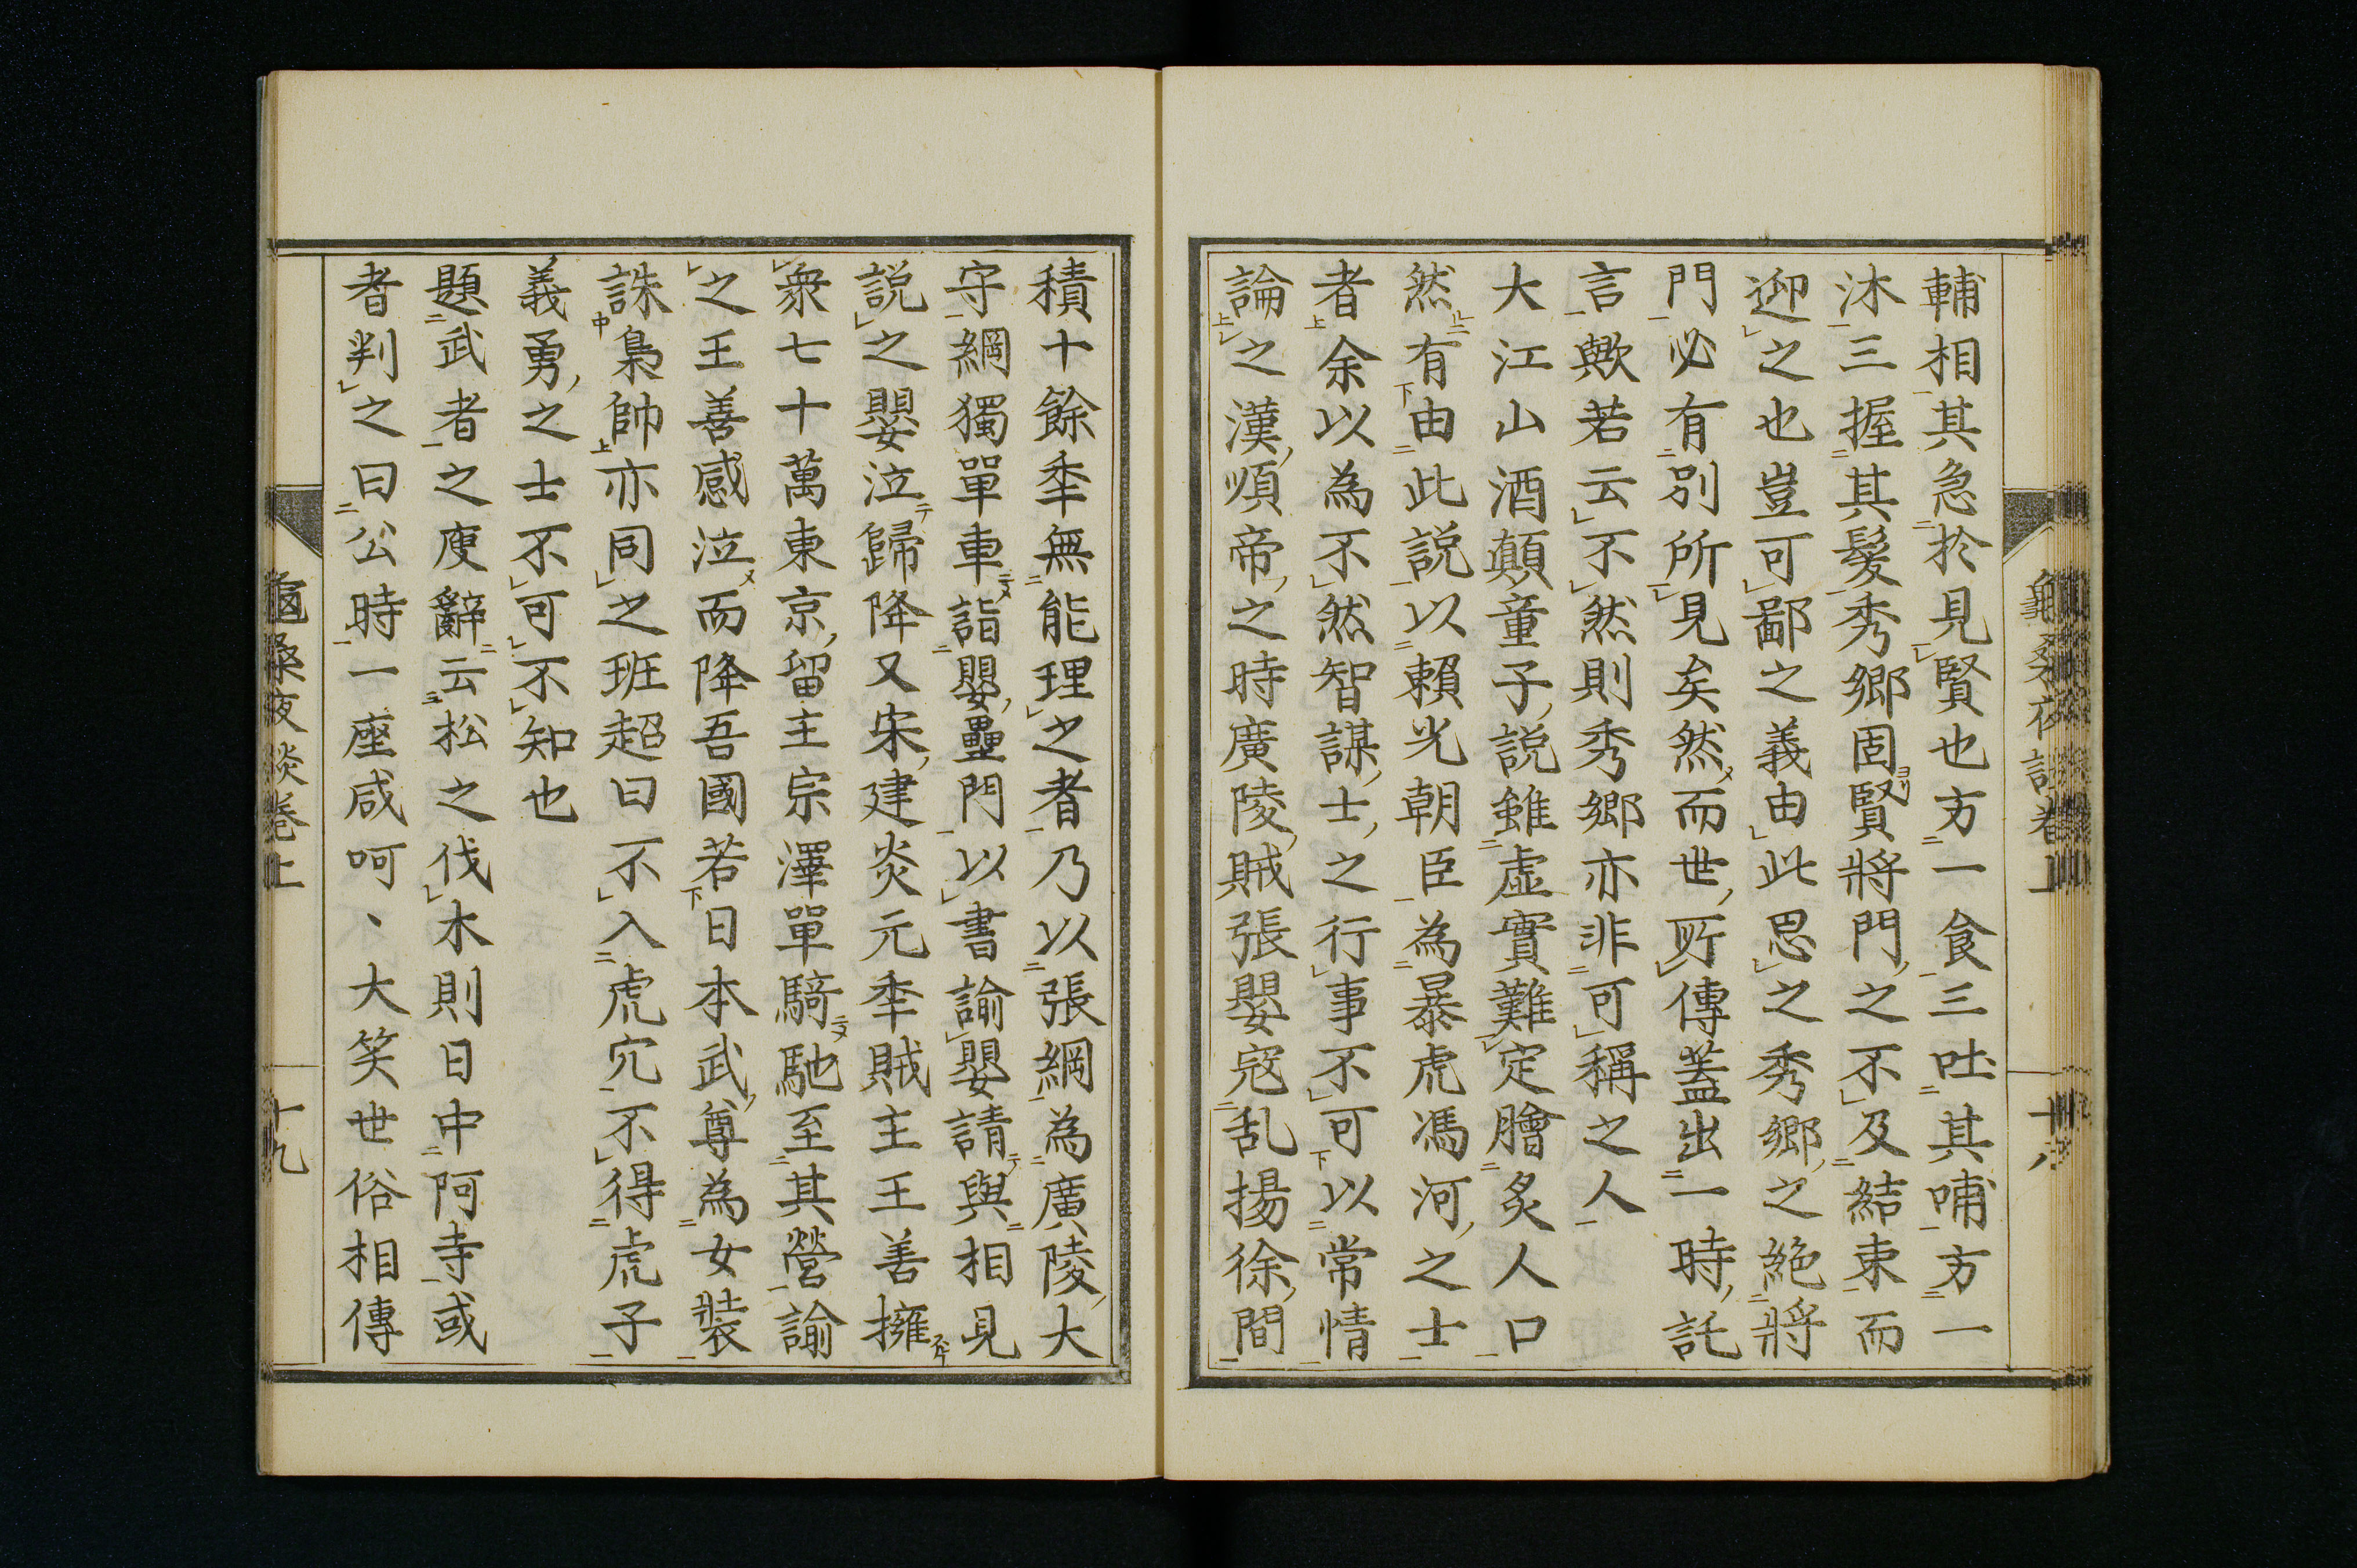 輔相其急於見賢也方一食三吐其哺方一
沐三握其髮秀郷固賢將門之不及結束而
迎之也豈可鄙之義由此思之秀郷之絶將
門必有別所見矣然而世所傳蓋出一時託
言歟若云不然則秀郷亦非可稱之人
大江山酒顛童子説雖虛實難定膾炙人口
然有由此説以賴光朝臣為暴虎馮河之士
者余以為不然智謀士之行事不可以常情
論之漢順帝之時廣陵賊張嬰寇乱揚徐間
積十餘秊無能理之者乃以張綱為廣陵大
守綱獨單車詣嬰壘門以書諭嬰請與相見
説之嬰泣歸降又宋建炎元秊賊主王善擁
衆七十萬東京留主宗澤單騎馳至其營諭
之王善感泣而降吾國若日本武尊為女裝
誅梟帥亦同之班超曰不入虎穴不得虎子
義勇之士不可不知也
題武者之廋辭云松之伐木則日中阿寺或
者判之曰公時一座咸呵丶大笑世俗相傳
桑夜談卷上
十九